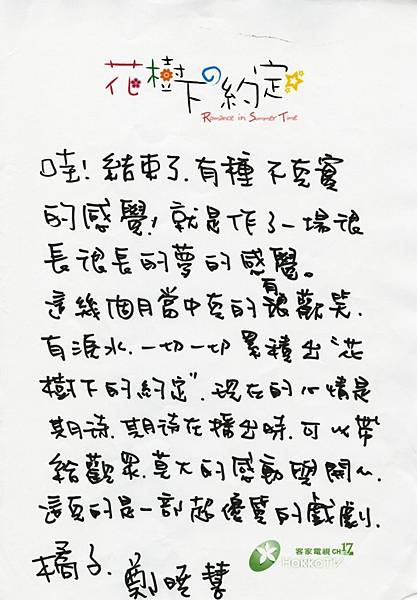 花樹下の約定
Romance in Summer Time
哇!結束了.有種不真實
的感覺!就是作了一場很
長很長的夢的感覺。
這幾個月當中真的有很歡笑.
有淚水.一切一切累積出"花
樹下的約定".現在的心情是
期待.期待在播出時.可以帶
給觀眾.莫大的感動與開心.
這真的是一部超優質的戲劇.
橘子. 鄭曉慧
客家電視 CH17
HAKKATV